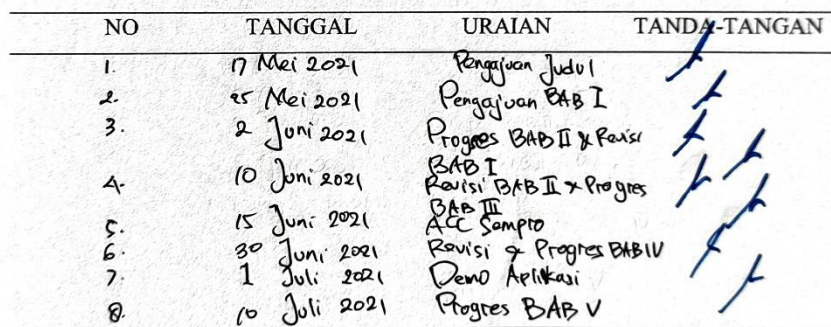 NO TANGGAL URAIAN TANDA-TANGAN
1. 17 Mei 2021 Pengajuan Judul
2. 25 Mei 2021 Pengajuan BAB I
3. 2 Juni 2021 Progres BAB II & Revisi
BAB I
4. 10 Juni 2021 Revisi BAB II & Progres
BAB III
5. 15 Juni 2021 ACC Sempro
6. 30 Juni 2021 Revisi & Progres BAB IV
7. 1 Juli 2021 Demo Aplikasi
8. 10 Juli 2021 Progres BAB V